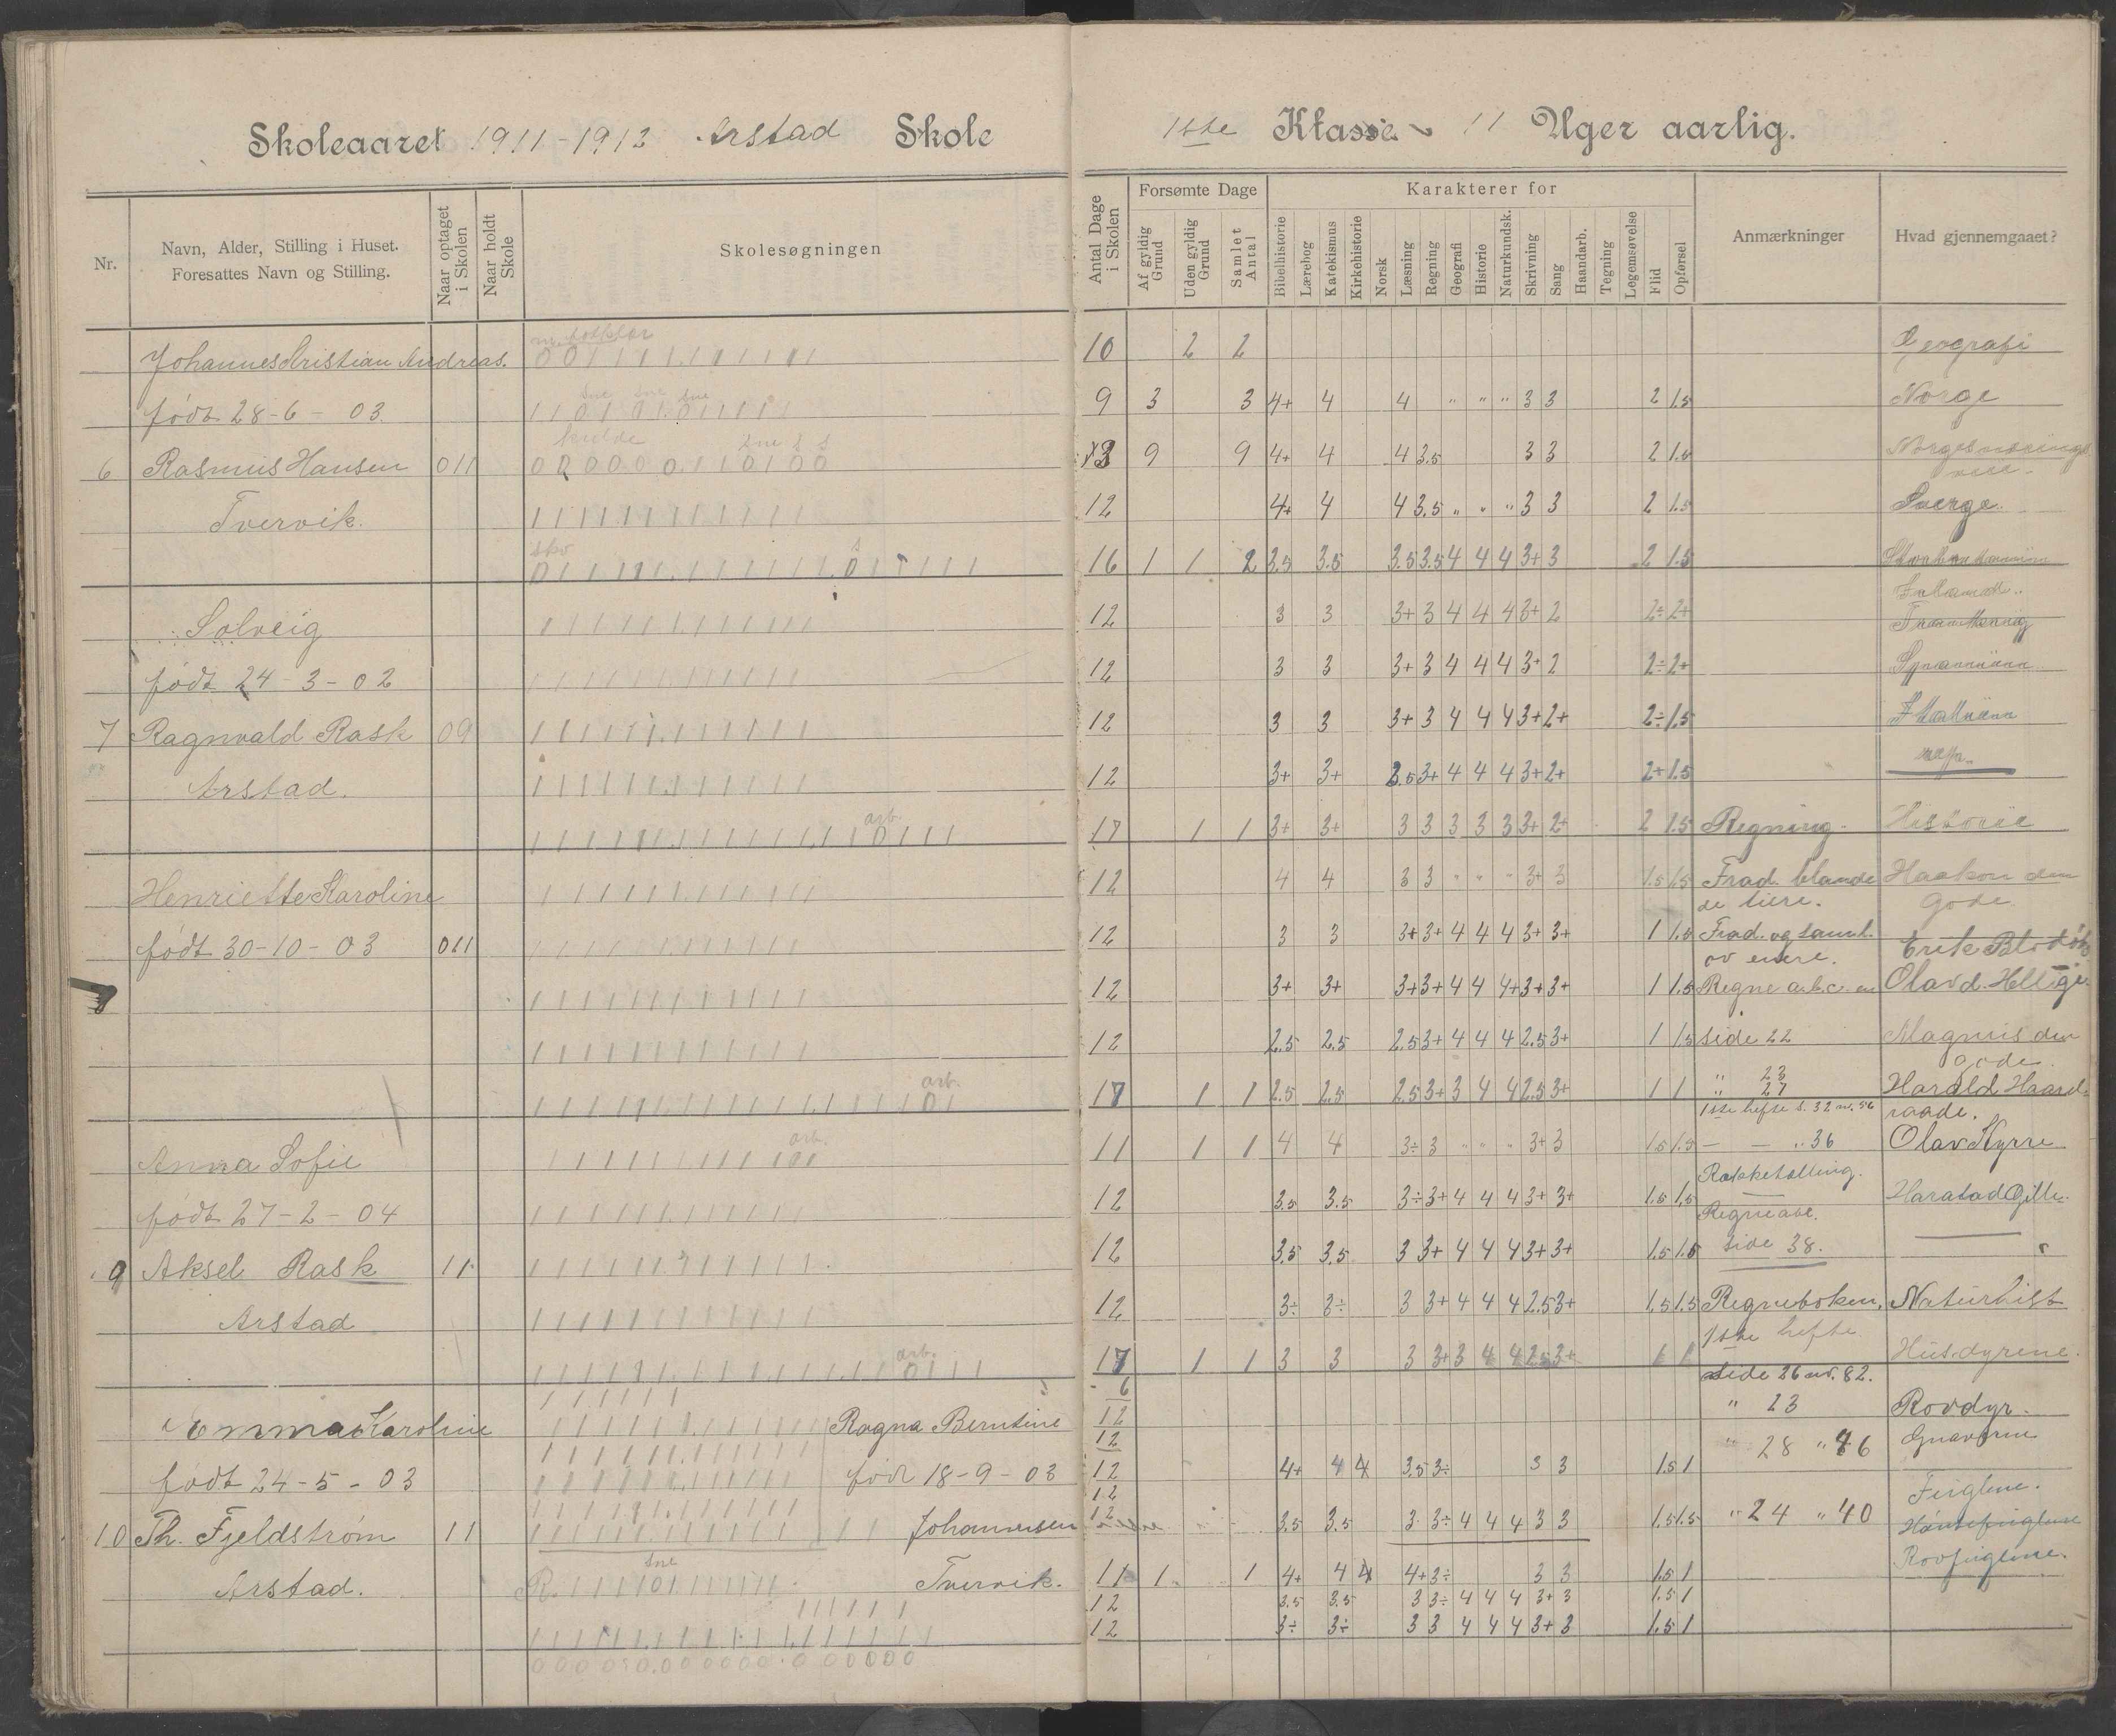 Skoleaaret 1911-1912 Arstad Skole
1ste Klasse 11 Uger aarlig.
Nr.
Navn, Alder, Stilling i Huset.
Foresattes Navn og Stilling.
Naar optaget i Skolen
Naar holdt Skole
Skolesøgningen
Antal Dage i Skolen
Forsømte Dage
Af gyldig Grund
Uden gyldig Grund
Samlet Antal
Karakterer for
Bibelhistorie
Lærebog
Katekismus
Kirkehistorie
Norsk
Læsning
Regning
Geografi
Historie
Naturkundsk.
Skrivning
Sang
Haandarb.
Tegning
Legemsøvelse
Flid
Opførsel
Anmærkninger
Hvad gjennemgaaet?
Johannes Kristian Andreas.
født 28-6-03.
6 Rasmus Hansen 011
Tvervik.
Solveig
født 24-3-02
7 Ragnvald Rask 09
Arstad.
Henriette Karoline
født 30-10-03 011
Anna Sofie
født 27-2-04
9 Aksel Rask 11
Arstad
Emma Karoline
født 24-5-03
10 Th. Fjeldstrøm 11
Arstad.
Ragna Berntine
født 18-9-03
11 Johannesen
Tvervik.
10 2 2
9 3 3 4+ 4 4 " " " 3 3 2 1.5
9 9 4+ 4 4 3.5 3 3 2 1.5
12 4+ 4 4 3.5 " " " 3 3 2 1.5
16 1 1 2 3.5 3.5 3.5 3.5 4 4 4 3+ 3 2 1.5
12 3 3 3+ 3 4 4 4 3+ 2 2÷ 2+
12 3 3 3+ 3 4 4 4 3+ 2 2÷ 2+
12 3 3 3+ 3 4 4 4 3+ 2+ 2÷ 1.5
12 3+ 3+ 2.5 3+ 4 4 4 3+ 2+ 2+ 1.5
17 1 1 3+ 3+ 3 3 3 3 3 3+ 2+ 2 1.5
12 4 4 3 3 " " " 3+ 3 1.5 1.5
12 3 3 3+ 3+ 4 4 4 3+ 3+ 1 1.5
12 3+ 3+ 3+ 3+ 4 4 4+ 3+ 3+ 1 1.5
12 2.5 2.5 2.5 3+ 4 4 4 2.5 3+ 1 1.5
17 1 1 2.5 2.5 2.5 3+ 3 4 4 2.5 3+ 1 1
11 1 1 4 4 3÷ 3 " " " 3+ 3 1.5 1.5
12 3.5 3.5 3÷ 3+ 4 4 4 3+ 3+ 1.5 1.5
12 3.5 3.5 3 3+ 4 4 4 3+ 3+ 1.5 1.5
12 3÷ 3÷ 3 3+ 4 4 4 2.5 3+ 1.5 1.5
17 1 1 3 3 3 3+ 3 4 4 2.5 3+ 1 1
6
12
12
12 4+ 4 4 3.5 3÷ 3 3 1.5 1
12
12 3.5 3.5 3 3÷ 4 4 4 3 3 1.5 1.5
11 1 1 4+ 4 4 4+ 3÷ 3 3 1.5 1
12 3.5 3.5 3 3÷ 4 4 4 3+ 3 1.5 1
12 3÷ 3÷ 3 3 4 4 4 3+ 3 1.5 1
Regning
Frad. blande
de tiere.
Frad. og saml.
av enere.
Regne a.b.c. en
side 22
" 23
" 27
1ste hefte s. 32 nr. 56
— — " 36
Rækketelling.
Regne abc.
side 38.
Regneboken.
1ste hefte
side 26 nr. 82.
" 23
" 28 " 46
" 24 " 40
Geografi
Norge
Sverge.
Historie
Haakon den
Gode.
Erik Blodøks
Olav d. Hellige.
Magnus den
gode.
Harald Haard-
raade.
Olav Kyrre
Harald Gille.
Naturhist
Husdyrene.
Rovdyr.
Gnaverne
Fuglene.
Hønsefuglene
Rovfuglene.